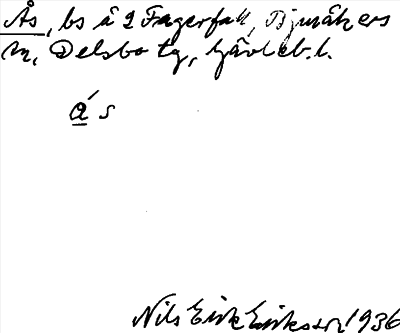 Ås, bs å 2 Fagerfall, Bjuråkers
sn, Delsbo tg, Gävleb. l.
å´ s
Nils Erik Eriksson 1936